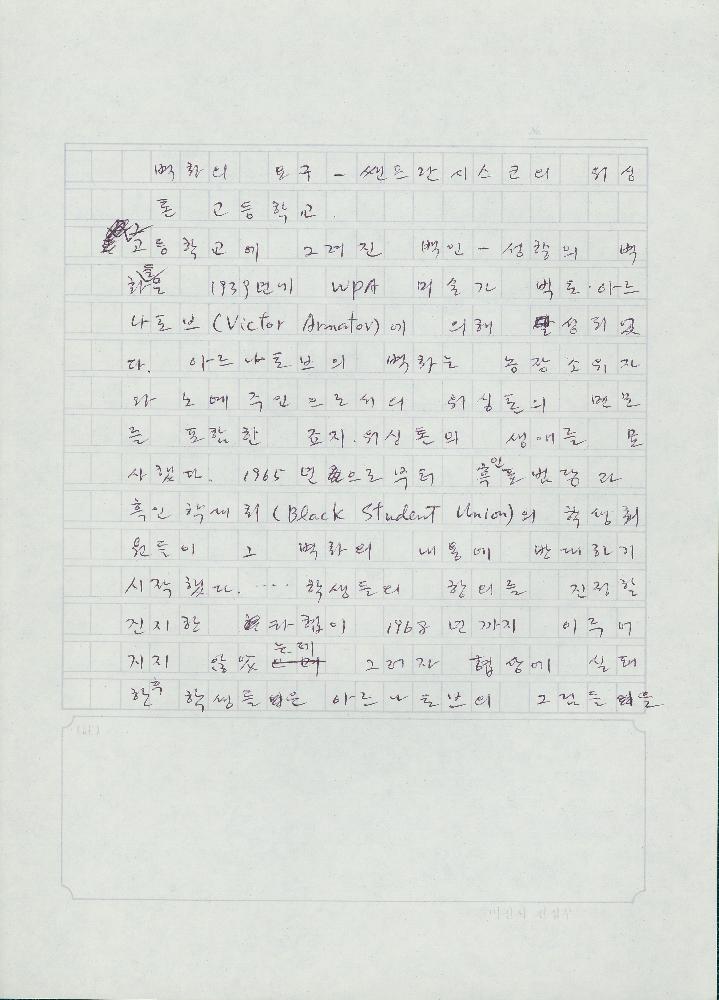 No.
벽화의 요구 - 쌘프란시스코의 워싱
톤 고등학교.
고등학교에 그려진 백인 - 성향의 벽
화들은 1939년에 WPA 미술가 빅토·아르
나토브 (Victor Arnatov)에 의해 달성되었
다. 아르나토브의 벽화는 농장소유자
와 노예주인으로써의 워싱톤의 면모
를 포함한 죠지·워싱톤의 생애를 묘
사했다. 1965년으로부터 흑인
흑인학생회 (Black Student Union)의 학생회
원들이 그 벽화의 내용에 반대하기
시작했다. …… 학생들의 항의를 진정할
진지한 타협이 1968년까지 이루어
지지 않았는데 그러자 협상에 실패
한 흑 학생들은 아르나토브의 그림들을